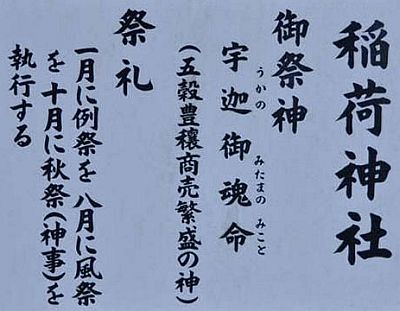 稲荷神社
御祭神
宇迦御魂命
うかの みたまの みこと
(五穀豊穣商売繁盛の神)
祭礼
一月に例祭を 八月に風祭
を 十月に秋祭(神事)を
執行する